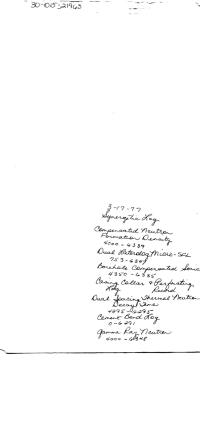 30-015-21965
3-17-77
Synergetic Log
Compensated Neutron
Formation Density
4000-6389
Dual Laterolog Micro-SFL
753-6389
Borehole Compensated Sonic
4350-6385
Casing Collar & Perforating
Log Record
Dual Spacing Thermal Neutron
Decay Time
Cement Bond Log
0-6291
Gamma Ray Neutron